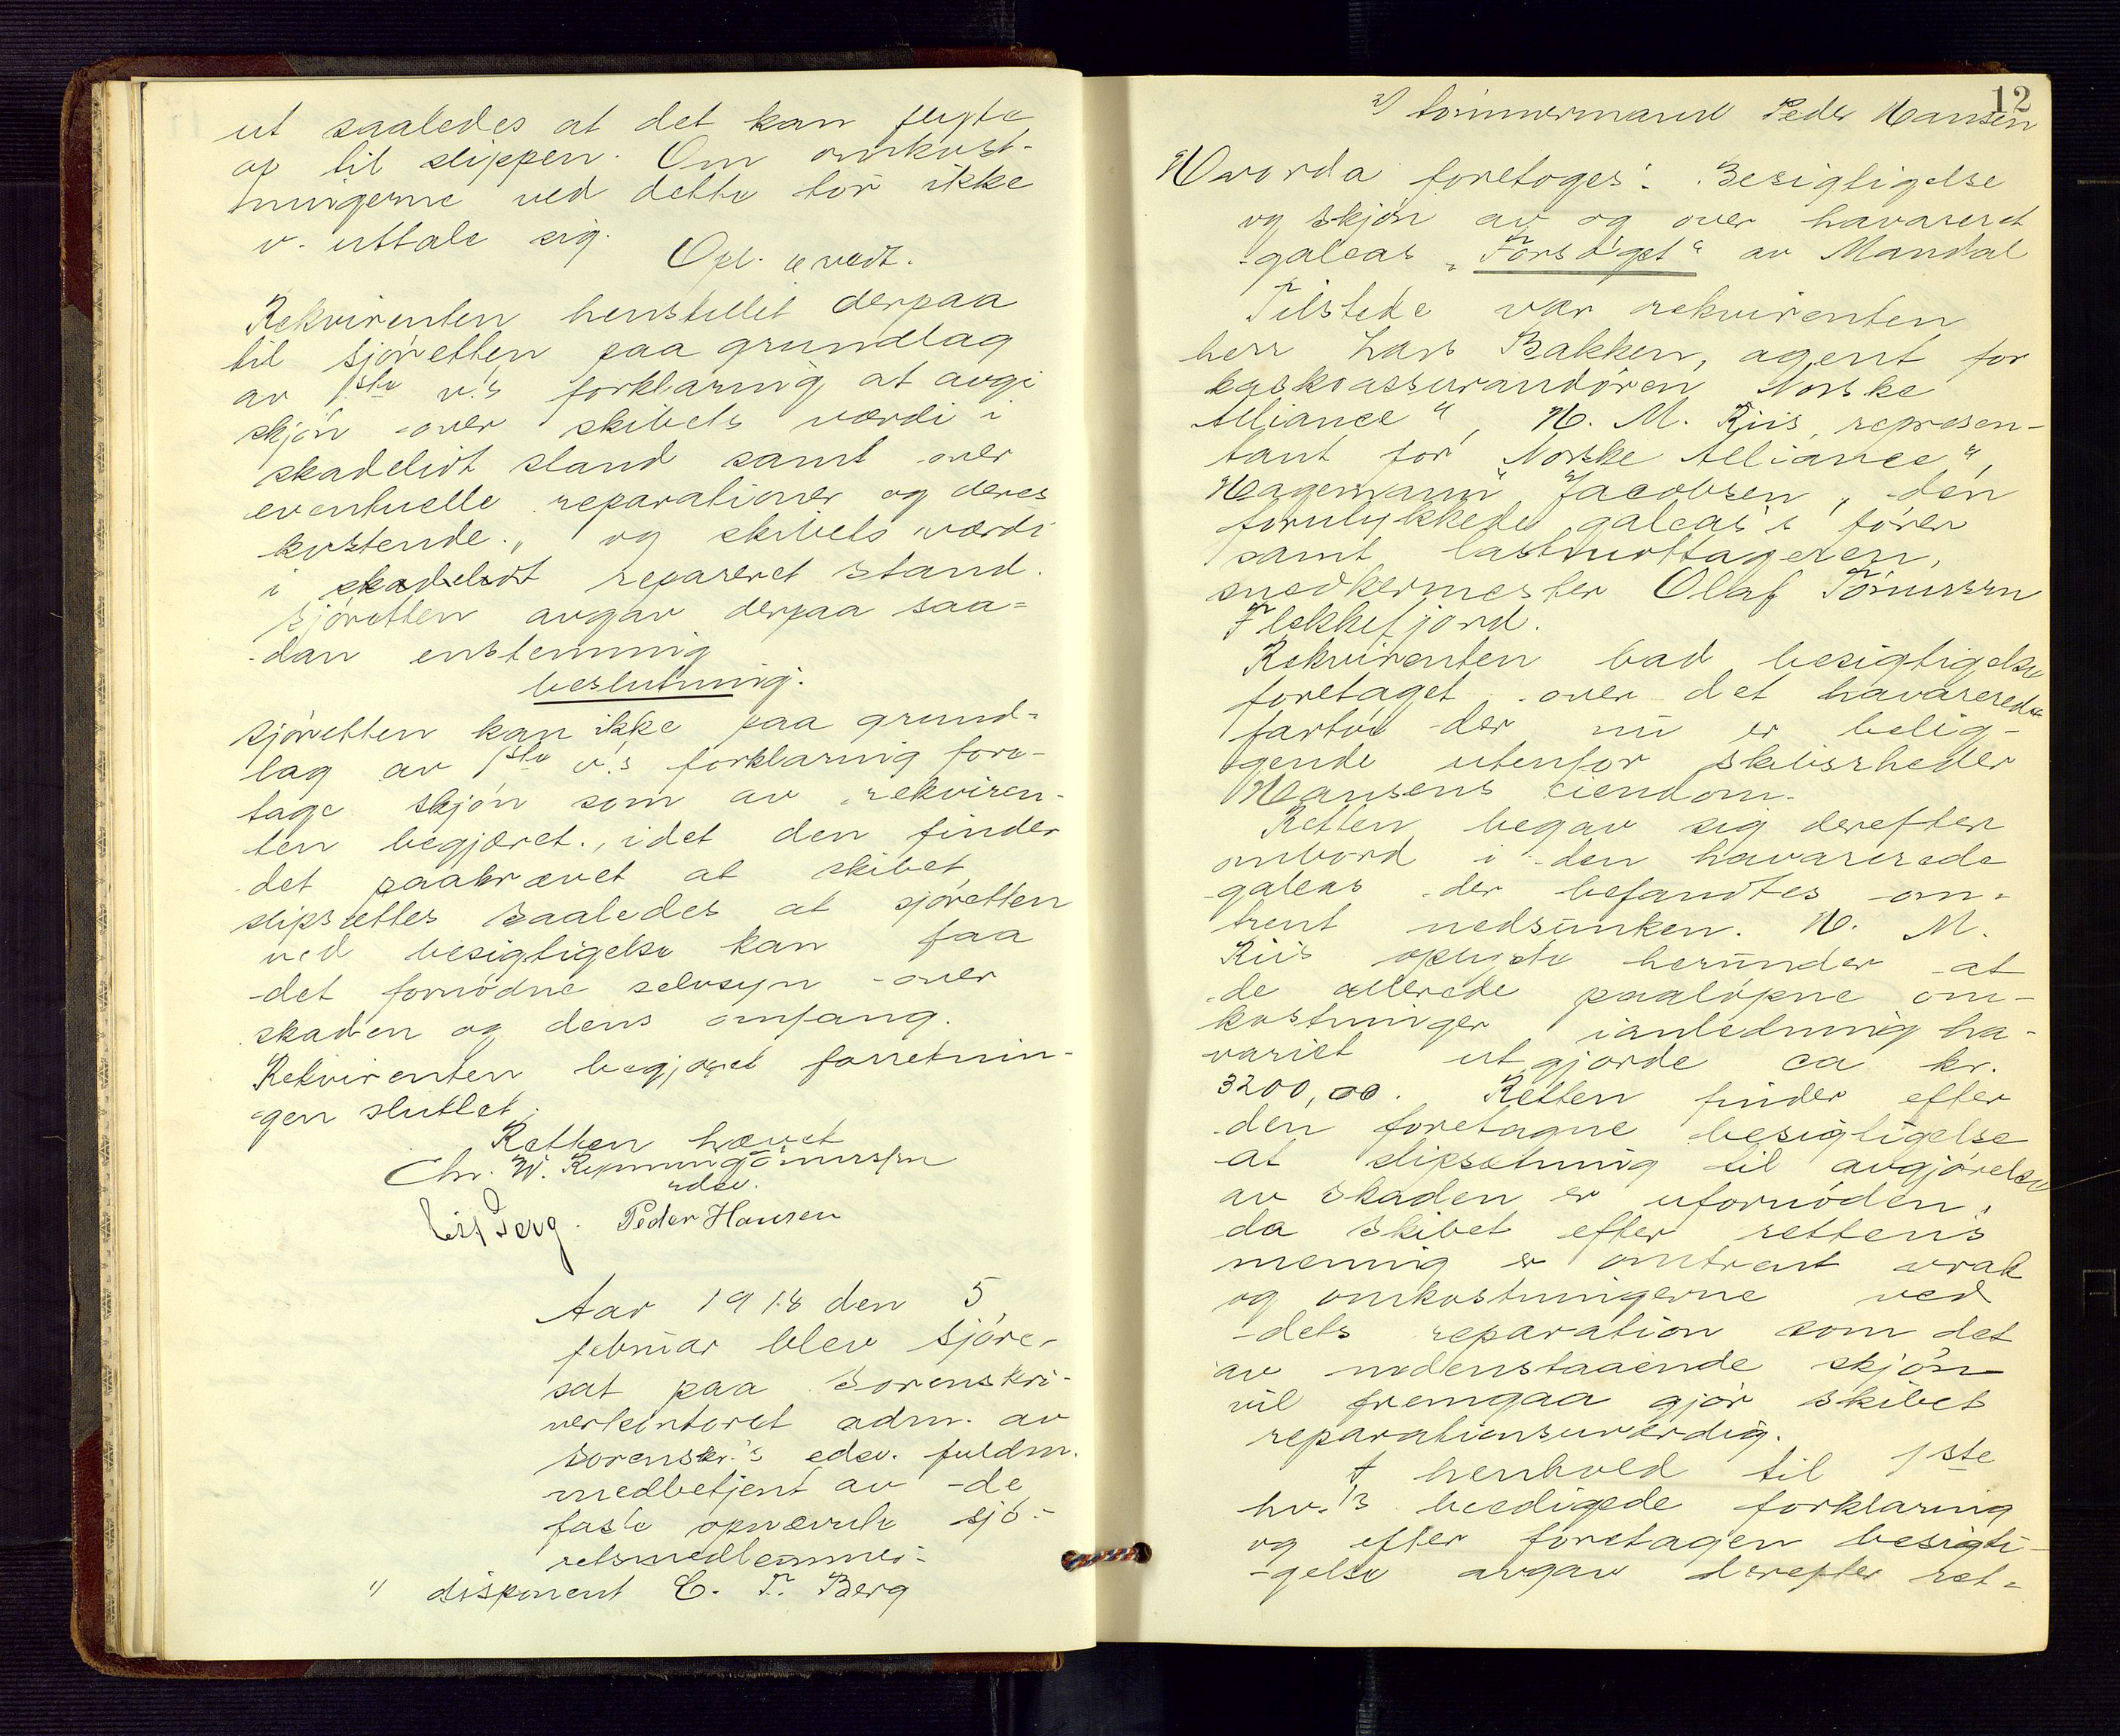 ut saaledes at det kan flyte
op til slippen. Om omkost-
ningerne ved dette tør ikke
v. uttale sig.
Opl. & vedt.
Rekvirenten henstillet derpaa
til sjøretten paa grundlag
av 1ste v.'s forklaring at avgi
skjøn over skibets værdi i
skadelidt stand samt over
eventuelle reparationer og deres
kostende., og skibets værdi
i skadelidt reparert stand.
Sjøretten avgav derpaa saa-
dan enstemmig
beslutning:
Sjøretten kan ikke paa grund-
lag av 1ste v.'s forklaring fore-
tage skjøn som av rekviren-
ten begjæret., idet den finder
det paakrævet at skibet
slipsættes saaledes at sjøretten
ved besigtigelse kan faa
det fornødne selvsyn over
skaden og dens omfang.
Rekvirenten begjæret forretnin-
gen sluttet.
Retten hævet
Chr. W. Rynning Tønnessen
edsv.
Berg. Peder Hansen
Aar 1918 den 5
februar blev sjøre-
sat paa Sorenskri-
verkontoret adm. av
sorenskr.'s edsv. fuldm.
medbetjent av de
faste opnævnte sjø-
retsmedlemmer:
1) disponent C. F. Berg
12
2) tømmermand Peder Hansen
Hvorda foretoges: Besigtigelse
og skjøn av og over havareret
galeas „Forsøget" av Mandal
Tilstede var rekvirenten
herr Lars Bakken, agent for
kaskoassurandøren Norske
Alliance", H. M. Riis, represen-
tant for „Norske Alliance",
Hagemann Jacobsen, den
forulykkede galeas's fører
samt lastmottageren,
snedkermester Olaf Tønnessen
Flekkefjord.
Rekvirenten bad besigtigelse
foretaget over det havarerede
fartøi der nu er belig-
gende utenfor skibsrheder
Hansens eiendom.
Retten begav sig derefter
ombord i den havarerede
galeas der befandtes om-
trent nedsunken. H. M.
Riis oplyste herunder at
de allerede paaløpne om-
kostninger i anledning ha-
variet utgjorde ca kr.
3200,00. Retten finder efter
den foretagne besigtigelse
at slipsætning til avgjørelse
av skaden er ufornøden,
da skibet efter rettens
mening er omtrent vrak
og omkostningerne ved
dets reparation som det
av nedenstaaende skjøn
vil fremgaa gjør skibet
reparationsuværdig.
I henhold til 1ste
hv.'s beedigede forklaring
og efter foretagen besigti-
gelse avgav derefter ret-